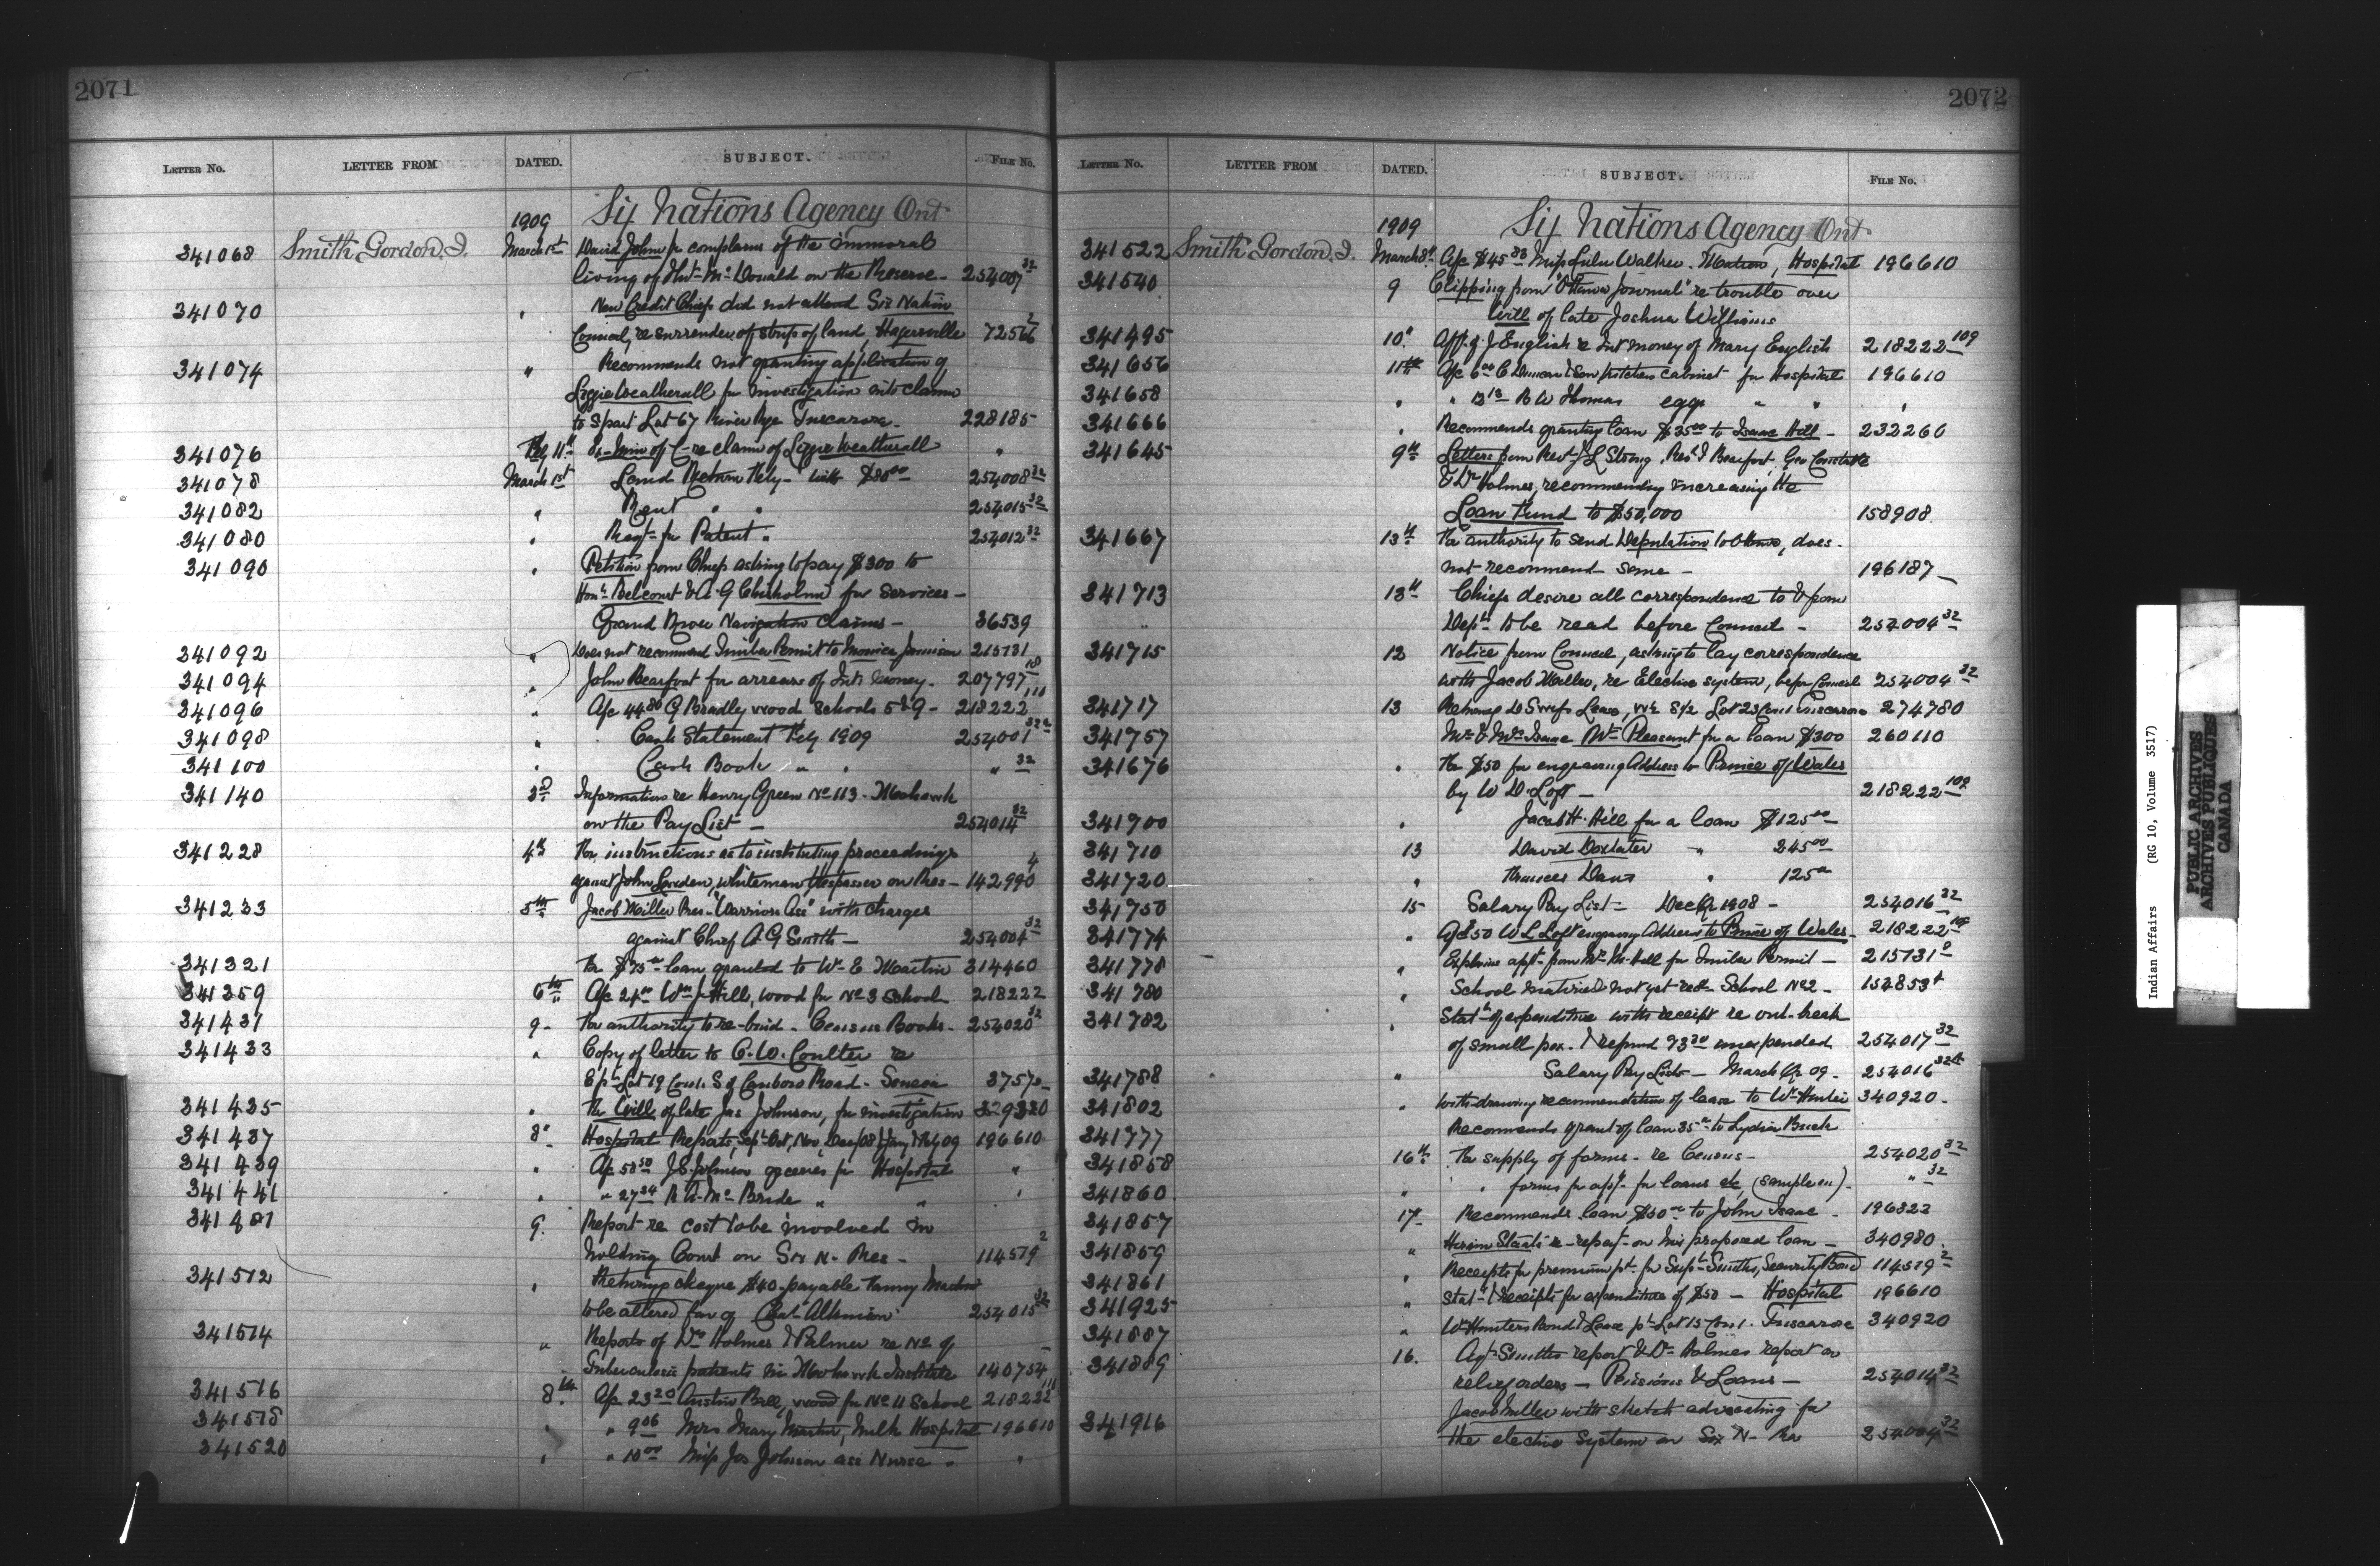 2071
LETTER No. LETTER FROM DATED. SUBJECT. FILE No.
1909 Six Nations Agency Ont
341068 Smith Gordon J. March 1st David John complains of the immoral
living of Mc Donald on the Reserve - 254007 32
341070 " New Credit Chiefs did not attend Six Nation
Council, re surrender of strip of land, Hagersville 72566 2
341074 " Recommends not granting application of
Lizzie Weatherall for investigation into claim
to S part Lot 67 River Rge Tuscarora - 228185
341076 Feby 11th Ex - Min of C - re claim of Lizzie Weatherall "
341078 March 1st Land Return Feby - with $80 00 254008 32
341082 " Rent " " 254015 32
341080 " Regt for Patent " 254012 32
341090 " Petition from Chiefs asking to pay $300 to
Hon. Belcourt & A. G Chisholm for Services -
Grand River Navigation Claims - 36539
341092 " Does not recommend Timber Permit to Monica Jamieson 215731
341094 " John Bearfoot for arrears of Int. Money - 207797 18
341096 " A/c 44 80 G Bradly wood Schools 5 & 9 - 218222 111
341098 " Cash Statement Feby 1909 254001 32
341100 " Cash Book " " " 32
341140 3rd Information re Henry Green No 113 - Mohawk
on the Pay List - 254014 32
341228 4th For instructions as to instituting proceedings
against John, whiteman trespasser on Res - 142990 4
341233 5th Jacob Miller Pres - "Warriors Ass" with charges
against Chief A. G Smith - 254004 32
341321 For $75 00 loan granted to Wm E Martin 314460
341359 6th A/c 24 00 Wm J. Hill, wood for No 3 School 218222
341431 9 - For authority to re-bind - Census Books - 254020 32
341433 " Copy of letter to C. W. Coulter re
E pt Lot 19 Con 1. S of Canboro Road - Seneca 37570
341435 " For Will of late Jas Johnson, for investigation 329320
341437 8th Hospital Reports, Sept Oct, Nov, Dec/08 Jany & Feby 09 196610
341439 " A/c 58 50 J. S. Johnson groceries for Hospital "
341441 " " 27 34 R A. Mc Bride " " "
341481 9. Report re cost to be involved in
holding Court on Six N - Res - 114519 2
341512 " Returns cheque $40 - payable Fanny
to be altered fav of Atkinson 254015 32
341514 " Reports of Drs Holmes & Palmer re No of
Tuberculosis patients in Mohawk Institute 140754
341516 8th A/c 23 20 Austin Bill, wood for No 11 School 218222 111
341518 " " 9 06 Mrs Mary Martin, Milk Hospital 196610
341520 " " 10 00 Miss Jos Johnson ass Nurse " "
2072
LETTER No. LETTER FROM DATED. SUBJECT. FILE No.
1909 Six Nations Agency Ont
341522 Smith Gordon J. March 8th A/c $45 83 Miss Lulu Walker - Matron, Hospital 196610
341540 9 Clipping from "Ottawa Journal" re trouble over
Will of late Joshua Williams
341495 10th App. of J English re Int money of Mary English 218222 109
341656 11th A/c 6 00 C Duncan & Son kitchen cabinet for Hospital 196610
341658 " " 12 13 B W Thomas eggs " " "
341666 " Recommends granting loan $35 00 to Isaac Hill - 232260
341645 9th Letters from Revd J L Strong, Revd I Bearfoot, Geo
& Dr Holmes, recommending increasing the
Loan Fund to $50,000 158908
341667 13th For authority to send Deputation to Ottawa, does
not recommend same - 196187
341713 13th Chiefs desire all correspondence to & from
Dept to be read before Council - 254004 32
341715 12 Notice from Council, asking to lay correspondence
with Jacob Miller, re Elective system, before Council 254004 32
341717 13 Returns Lease, W½ S½ Lot 23 Con 1 Tuscarora 274780
341757 Mr & Mrs Isaac Mt Pleasant for a loan $300 260110
341676 " For $50 for engraving Address to Prince of Wales
by W D. Loft - 218222 109
341900 " Jacob H. Hill for a loan $125 00
341710 13 David Doxtater " 245 00
341720 " Davis " 125 00
341750 15 Salary Pay List - Dec Qr 1908 - 254016 32
341774 " A/c $50 W L Loft engraving Address to Prince of Wales - 218222 109
341778 " Explains appt from Mr M. Hall for Timber Permit - 215731
341780 " School material not yet recd - School No 2 - 154853
341782 " Statt of expenditure with receipt re out-break
of small pox. & refund 93 30 unexpended 254017 32
341788 " Salary Pay Lists - March Qr 09 - 254016 32
341802 " with-drawing recommendation of lease to Wm Hunter 340920 -
341777 Recommends grant of loan 35 00 to Lydia Buck
341858 16th For supply of forms - re Census - 254020 32
341860 " " forms for app. for loans etc (sample en) - " 32
341857 17 - Recommends loan $50 00 to John Isaac - 196322
341859 " Hiram Staats re-report - on his proposed loan - 340980
341861 " Receipts for premium pt. for Supt Smiths, Security Bond 114519 2
341925 " Statt & receipts for expenditure of $50 - Hospital 196610
341887 " Wm Hunters Bond & Lease pt Lot 15 Con 1. Tuscarora 340920
341889 16. Agt Smiths report & Dr Holmes report on
relief orders - Pensions & Loans - 254014 32
341916 Jacob Miller with sketch advocating for
the elective system on Six N - Res 254004 32
Indian Affairs (RG 10, Volume 3517)
PUBLIC ARCHIVES
ARCHIVES PUBLIQUES
CANADA